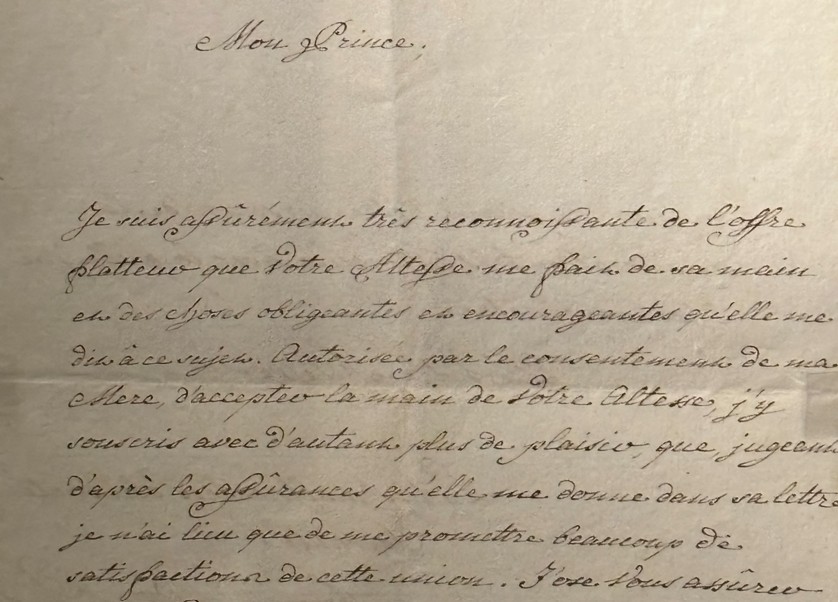 Mon Prince,
Je suis assûrément très reconnoissante de l'offre
flatteur que Votre Altesse me fait de sa main
et des choses obligeantes et encourageantes qu'elle me
dit à ce sujet. Autorisée par le consentement de ma
Mere, d'accepter la main de Votre Altesse, j'y
souscris avec d'autant plus de plaisir, que, jugeant
d'après les assûrances qu'elle me donne dans sa lettre
je n'ai lieu que de me promettre beaucoup de
satisfaction de cette union. J'ose Vous assûrer